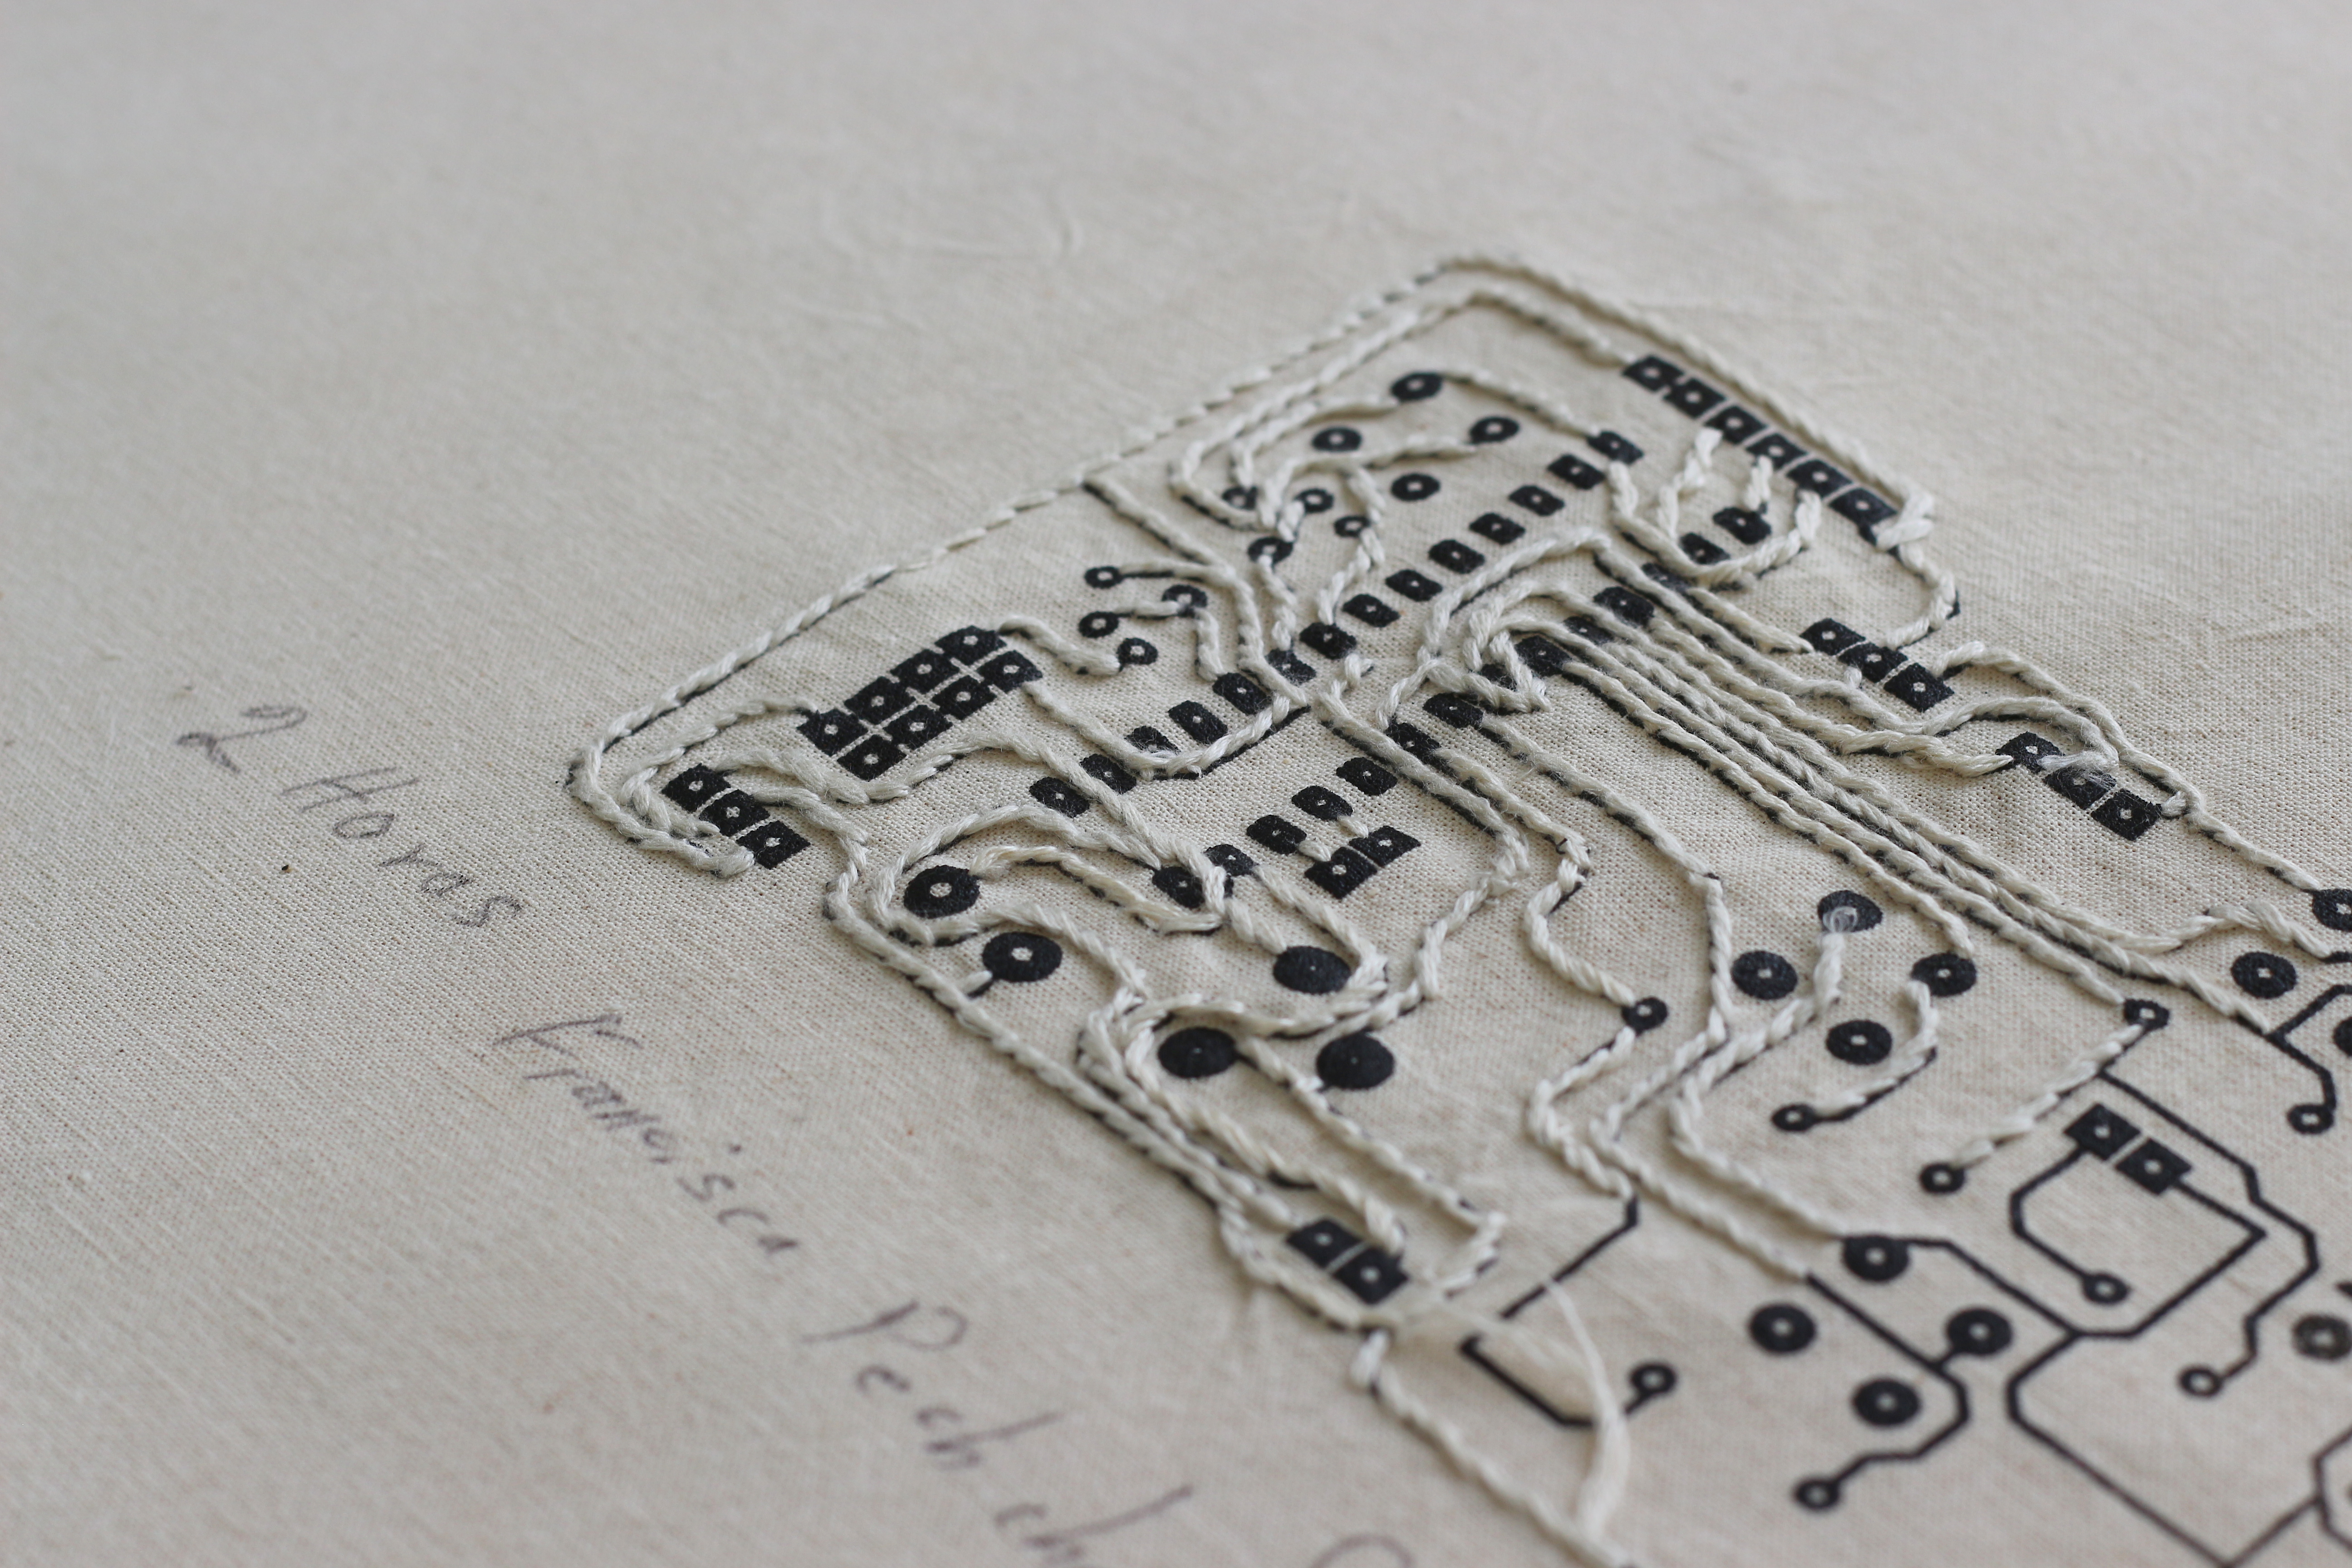 2 Horas Francisca Pech